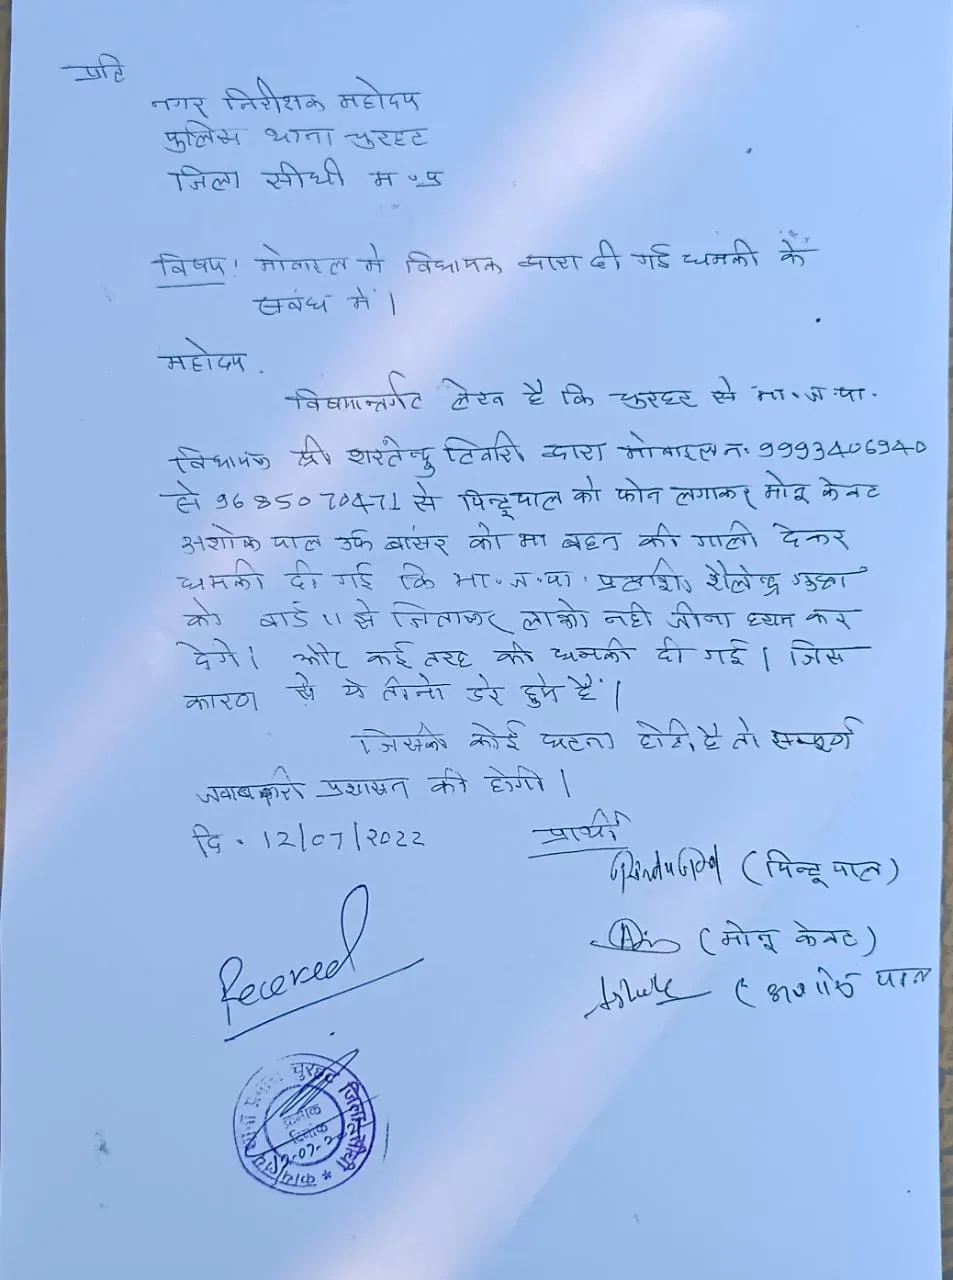 प्रति
नगर निरीक्षक महोदय
पुलिस थाना चुरहट
जिला सीधी म.प्र
विषय! मोबाइल मे विधायक द्वारा दी गई धमकी के
संबंध में।
महोदय.
विषयान्तर्गत लेख है कि चुरहट से भा.ज.पा.
विधायक श्री शरतेन्दु तिवारी द्वारा मोबाइल न: 9993406940
से 9685070471 से पिन्टू पाल को फोन लगाकर मोनू केवट
अशोक पाल उर्फ बांसर को मा बहन की गाली देकर
धमकी दी गई कि भा.ज.पा. शैलेन्द्र
को वार्ड 11 से जिताकर लाओ नही जीना कर
देगे। और कई तरह की धमकी दी गई। जिस
कारण से ये तीनो डरे हुये है।
जिसकी कोई घटना होती है तो सम्पूर्ण
जवाबदारी प्रशासन की होगी।
दि. 12/07/2022 प्रार्थी
(पिन्टू पाल)
(मोनू केवट)
Ashok (अशोक पाल
Received
चुरहट जिला सीधी
क्रमांक
दिनांक